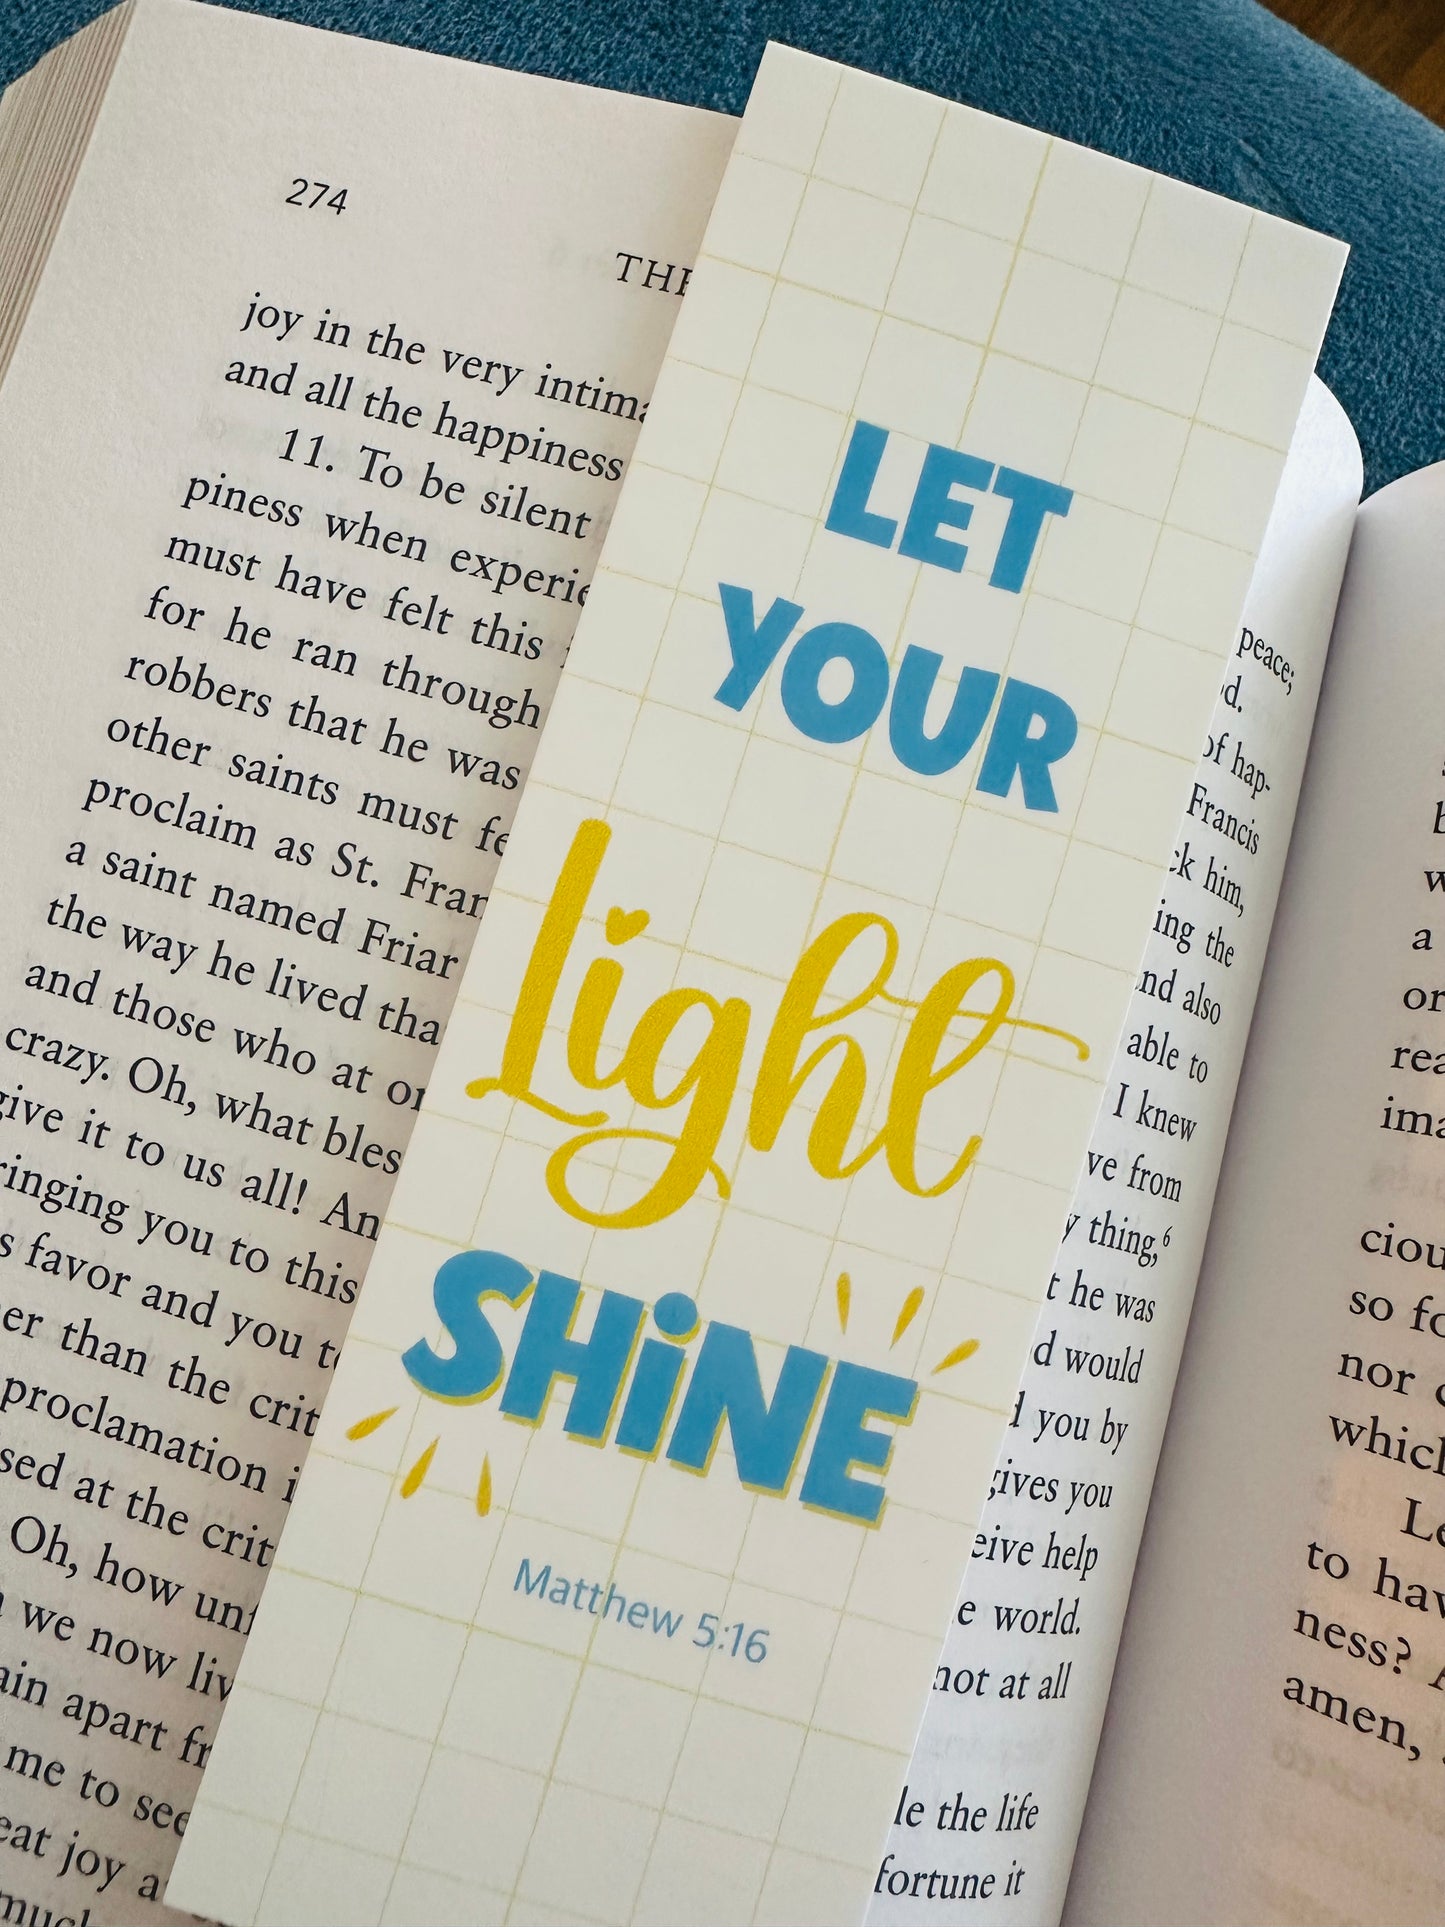 274
THE
joy in the very
and all the happiness
11. To be silent
piness when
must have felt this
for he ran through
robbers that he was
other saints must
proclaim as St.
a saint named Friar
the way he lived
and those who at
crazy. Oh, what
give it to us all!
you to this
favor and you
than the
proclamation
at the
Oh, how
we now
apart
me to see
joy a
LET
YOUR
Light
SHiNE
Matthew 5:16
peace;
of hap-
Francis
him,
ing the
also
able to
I knew
from
thing,6
he was
would
you by
gives you
help
world.
not at all
the life
fortune it
a
so
nor
which
to
ness?
amen,